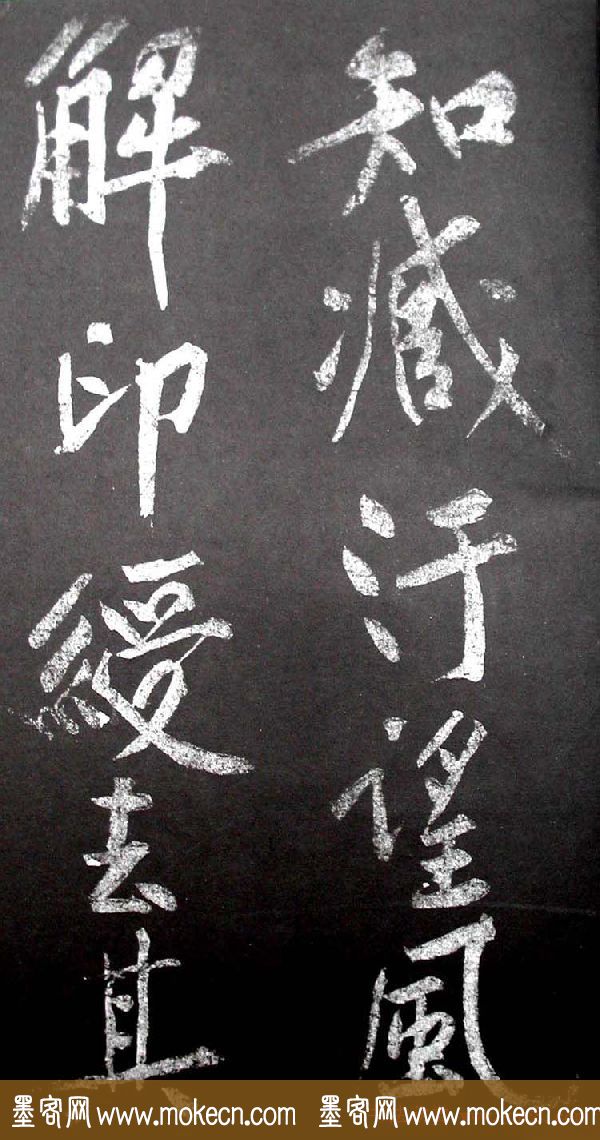 知臧汙望風
解印綬去其
墨客网 www.mokecn.com 墨客网 www.mokecn.com